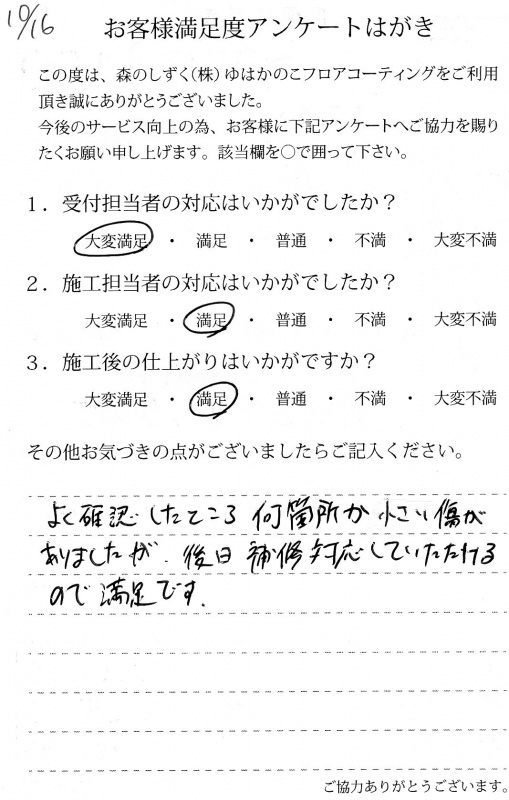 10/16
お客様満足度アンケートはがき
この度は、森のしずく(株)ゆはかのこフロアコーティングをご利用
頂き誠にありがとうございました。
今後のサービス向上の為、お客様に下記アンケートへご協力を賜り
たくお願い申し上げます。該当欄を○で囲って下さい。
1．受付担当者の対応はいかがでしたか？
大変満足 ・ 満足 ・ 普通 ・ 不満 ・ 大変不満
2．施工担当者の対応はいかがでしたか？
大変満足 ・ 満足 ・ 普通 ・ 不満 ・ 大変不満
3．施工後の仕上がりはいかがですか？
大変満足 ・ 満足 ・ 普通 ・ 不満 ・ 大変不満
その他お気づきの点がございましたらご記入ください。
よく確認したところ 何箇所か 小さい傷が
ありましたが、後日 補修対応していただける
ので 満足です.
ご協力ありがとうございます。